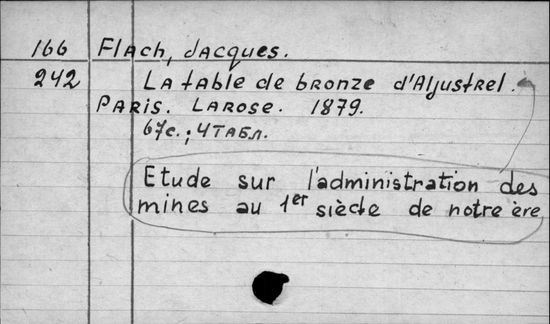 166 Flach, Jacques.
242 La table de bronze d'Aljustrel.
Paris. Larose. 1879.
67с.; 4 табл.
Etude sur l'administration des
mines au 1er siècle de notre ère